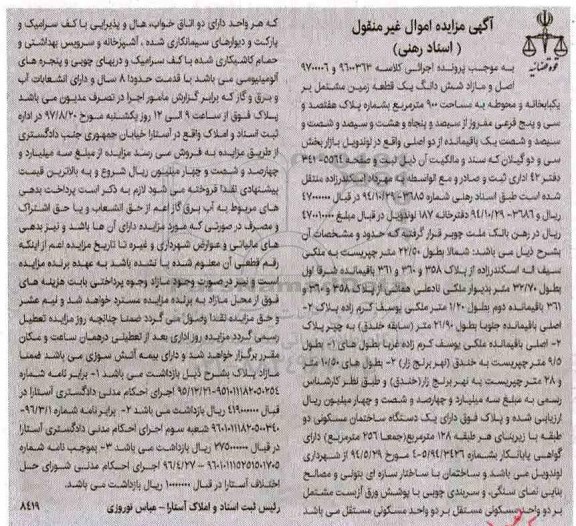 آگهی مزایده اموال غیر منقول
( اسناد رهنی )
قوه قضائیه
به موجب پرونده اجرائی کلاسه ۹۶۰۰۳۶۳ و ۹۷۰۰۰۰۶
اصل و مازاد شش دانگ یک قطعه زمین مشتمل بر
یکبابخانه و محوطه به مساحت ۹۰۰ مترمربع بشماره پلاک هفتصد و
سی و پنج فرعی مفروز از سیصد و پنجاه و هشت و سیصد و شصت و
سیصد و شصت یک باقیمانده از دو اصلی واقع در لوندویل بازار بخش
سی و دو گیلان که سند و مالکیت آن ذیل ثبت و صفحه ۵۵۶۴- ۳۴۱
دفتر ۴۲ اداری ثبت و صادر و مع الواسطه به مهرداد اسکندرزاده منتقل
شده است طبق اسناد رهنی شماره ۳۶۸۵-۹۴/۱۰/۲۹ در قبال ۴۷۰۰۰۰۰۰
ریال و ۳۶۸۶- ۹۴/۱۰/۲۹ دفترخانه ۱۸۷ لوندویل در قبال مبلغ ۴۷۰۰۱۰۰۰۰
ریال در رهن بانک ملت چوبر قرار گرفته که حدود و مشخصات آن
بشرح ذیل می باشد: شمالا بطول ۲۲/۵۰ متر چپریست به ملکی
سیف اله اسکندرزاده از پلاک ۳۵۸ و ۳۶۰ و ۳۶۱ باقیمانده شرقا اول
بطول ۳۲/۷۰ متر بدیوار ملکی نادعلی همائی از پلاک ۳۵۸ و ۳۶۰ و
۳۶۱ باقیمانده دوم بطول ۱/۲۰ متر ملکی یوسف کرم زاده پلاک ۲-
اصلی باقیمانده جنوبا بطول ۲۱/۹۰ متر (سابقه خندق) به چپر پلاک
۲- اصلی باقیمانده ملکی یوسف کرم زاده غربا بطول های ۱- بطول
۹/۵ متر چپریست به خندق (نهر برنج زار) ۲- بطول های ۱۰/۵۰ متر
و ۲۸ متر چپریست به نهر برنج زار (خندق) و طبق نظر کارشناس
رسمی به مبلغ سه میلیارد و چهارصد و شصت و چهار میلیون ریال
ارزیابی شده و پلاک فوق دارای یک دستگاه ساختمان مسکونی دو
طبقه با زیربنای هر طبقه ۱۲۸ مترمربع (جمعا ۲۵۶ مترمربع) دارای
گواهی پایانکار بشماره ۵۰۴/۹۴/۳۴۲۶ مورخ ۹۴/۵/۲۹ از شهرداری
لوندویل می باشد و ساختمان با ساختار سازه ای بتونی و مصالح
بنایی نمای سنگی، و سربندی چوبی با پوشش ورق آزبست مشتمل
بر دو واحد مسکونی مستقل بر دو واحد مسکونی مستقل می باشد
که هر واحد دارای دو اتاق خواب، هال و پذیرایی با کف سرامیک و
پارکت و دیوارهای سیمانکاری شده ، آشپزخانه و سرویس بهداشتی و
حمام کاشیکاری شده با کف سرامیک و دربهای چوبی و پنجره های
آلومینیومی می باشد با قدمت حدودا ۸ سال و دارای انشعابات آب
و برق و گاز که برابر گزارش مامور اجرا در تصرف مدیون می باشد
پلاک فوق از ساعت ۹ الی ۱۲ روز یکشنبه مورخ ۹۷/۸/۲۰ در اداره
ثبت اسناد و املاک واقع در آستارا خیابان جمهوری جنب دادگستری
از طریق مزایده به فروش می رسد مزایده از مبلغ سه میلیارد و
چهارصد و شصت و چهار میلیون ریال شروع و به بالاترین قیمت
پیشنهادی نقدا فروخته می شود لازم به ذکر است پرداخت بدهی
های مربوط به آب برق گاز اعم از حق انشعاب و یا حق اشتراک
و مصرف در صورتی که مورد مزایده دارای آن ها باشد و نیز بدهی
های مالیاتی و عوارض شهرداری و غیره تا تاریخ مزایده اعم از اینکه
رقم قطعی آن معلوم شده یا نشده باشد به عهده برنده مزایده
است و نیز در صورت وجود مازاد وجوه پرداختی بابت هزینه های
فوق از محل مازاد به برنده مزایده مسترد خواهد شد و نیم عشر
و حق مزایده نقدا وصول می گردد ضمنا چنانچه روز مزایده تعطیل
رسمی گردد مزایده روز اداری بعد از تعطیلی درهمان ساعت و مکان
مقرر برگزار خواهد شد و دارای بیمه آتش سوزی می باشد ضمنا
مازاد پلاک بشرح ذیل بازداشت می باشد ۱- برابر نامه شماره
۹۵/۱۲/۲۱ اجرای احکام مدنی دادگستری آستارا در
قبال ریال بازداشت می باشد ۲- برابر نامه شماره ۹۶/۳/۱-
شعبه سوم اجرای احکام مدنی دادگستری آستارا
در قبال ریال بازداشت می باشد ۳- بموجب نامه شماره
۹۶/۴/۲۷ اجرای احکام مدنی شورای حل
اختلاف آستارا در قبال ریال بازداشت می باشد.
رئیس ثبت اسناد و املاک آستارا – عباس نوروزی
۸۴۱۹